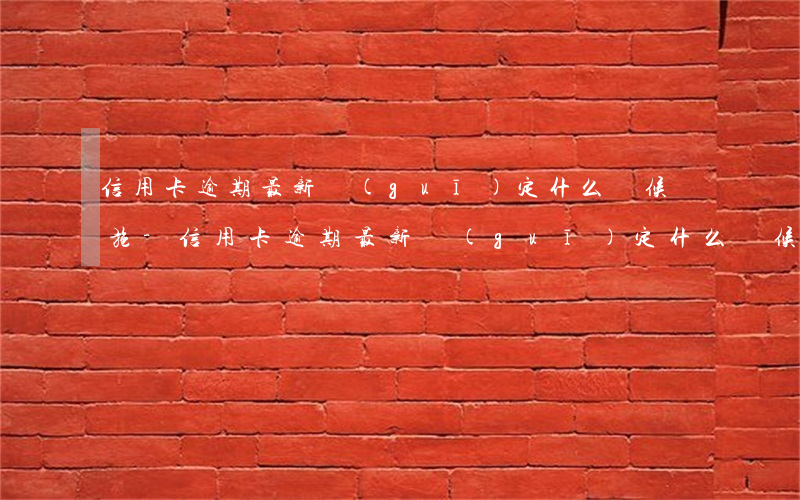 信用卡逾期最新 (guī)定什么 候
施-信用卡逾期最新 (guī)定什么 候